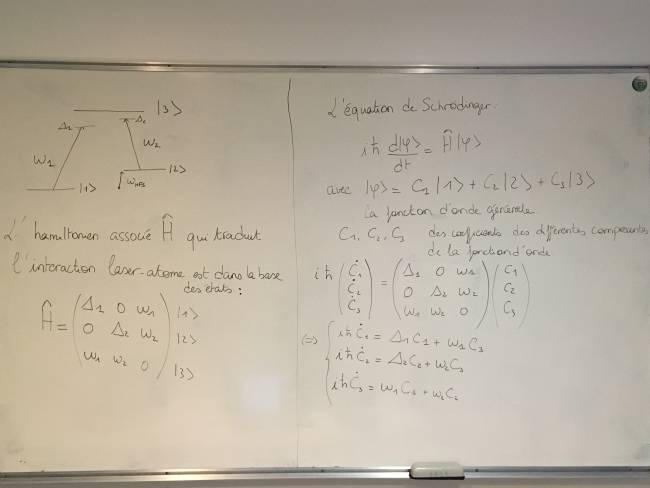 |3>
Δ1 Δ2
ω1 ω2
|1> |2>
ωHFS
L'hamiltonien associé Ĥ qui traduit
l'interaction laser-atome est dans la base
des états :
Ĥ = (Δ1 0 ω1) |1>
(0 Δ2 ω2) |2>
(ω1 ω2 0) |3>
L'équation de Schrödinger.
iħ d|φ>/dt = Ĥ|φ>
avec |φ> = C1|1> + C2|2> + C3|3>
la fonction d'onde générale
C1, C2, C3 des coefficients des différentes composantes
de la fonction d'onde
iħ (Ċ1) = (Δ1 0 ω1) (C1)
(Ċ2) (0 Δ2 ω2) (C2)
(Ċ3) (ω1 ω2 0) (C3)
(=) { iħĊ1 = Δ1C1 + ω1C3
iħĊ2 = Δ2C2 + ω2C3
iħĊ3 = ω1C1 + ω2C2